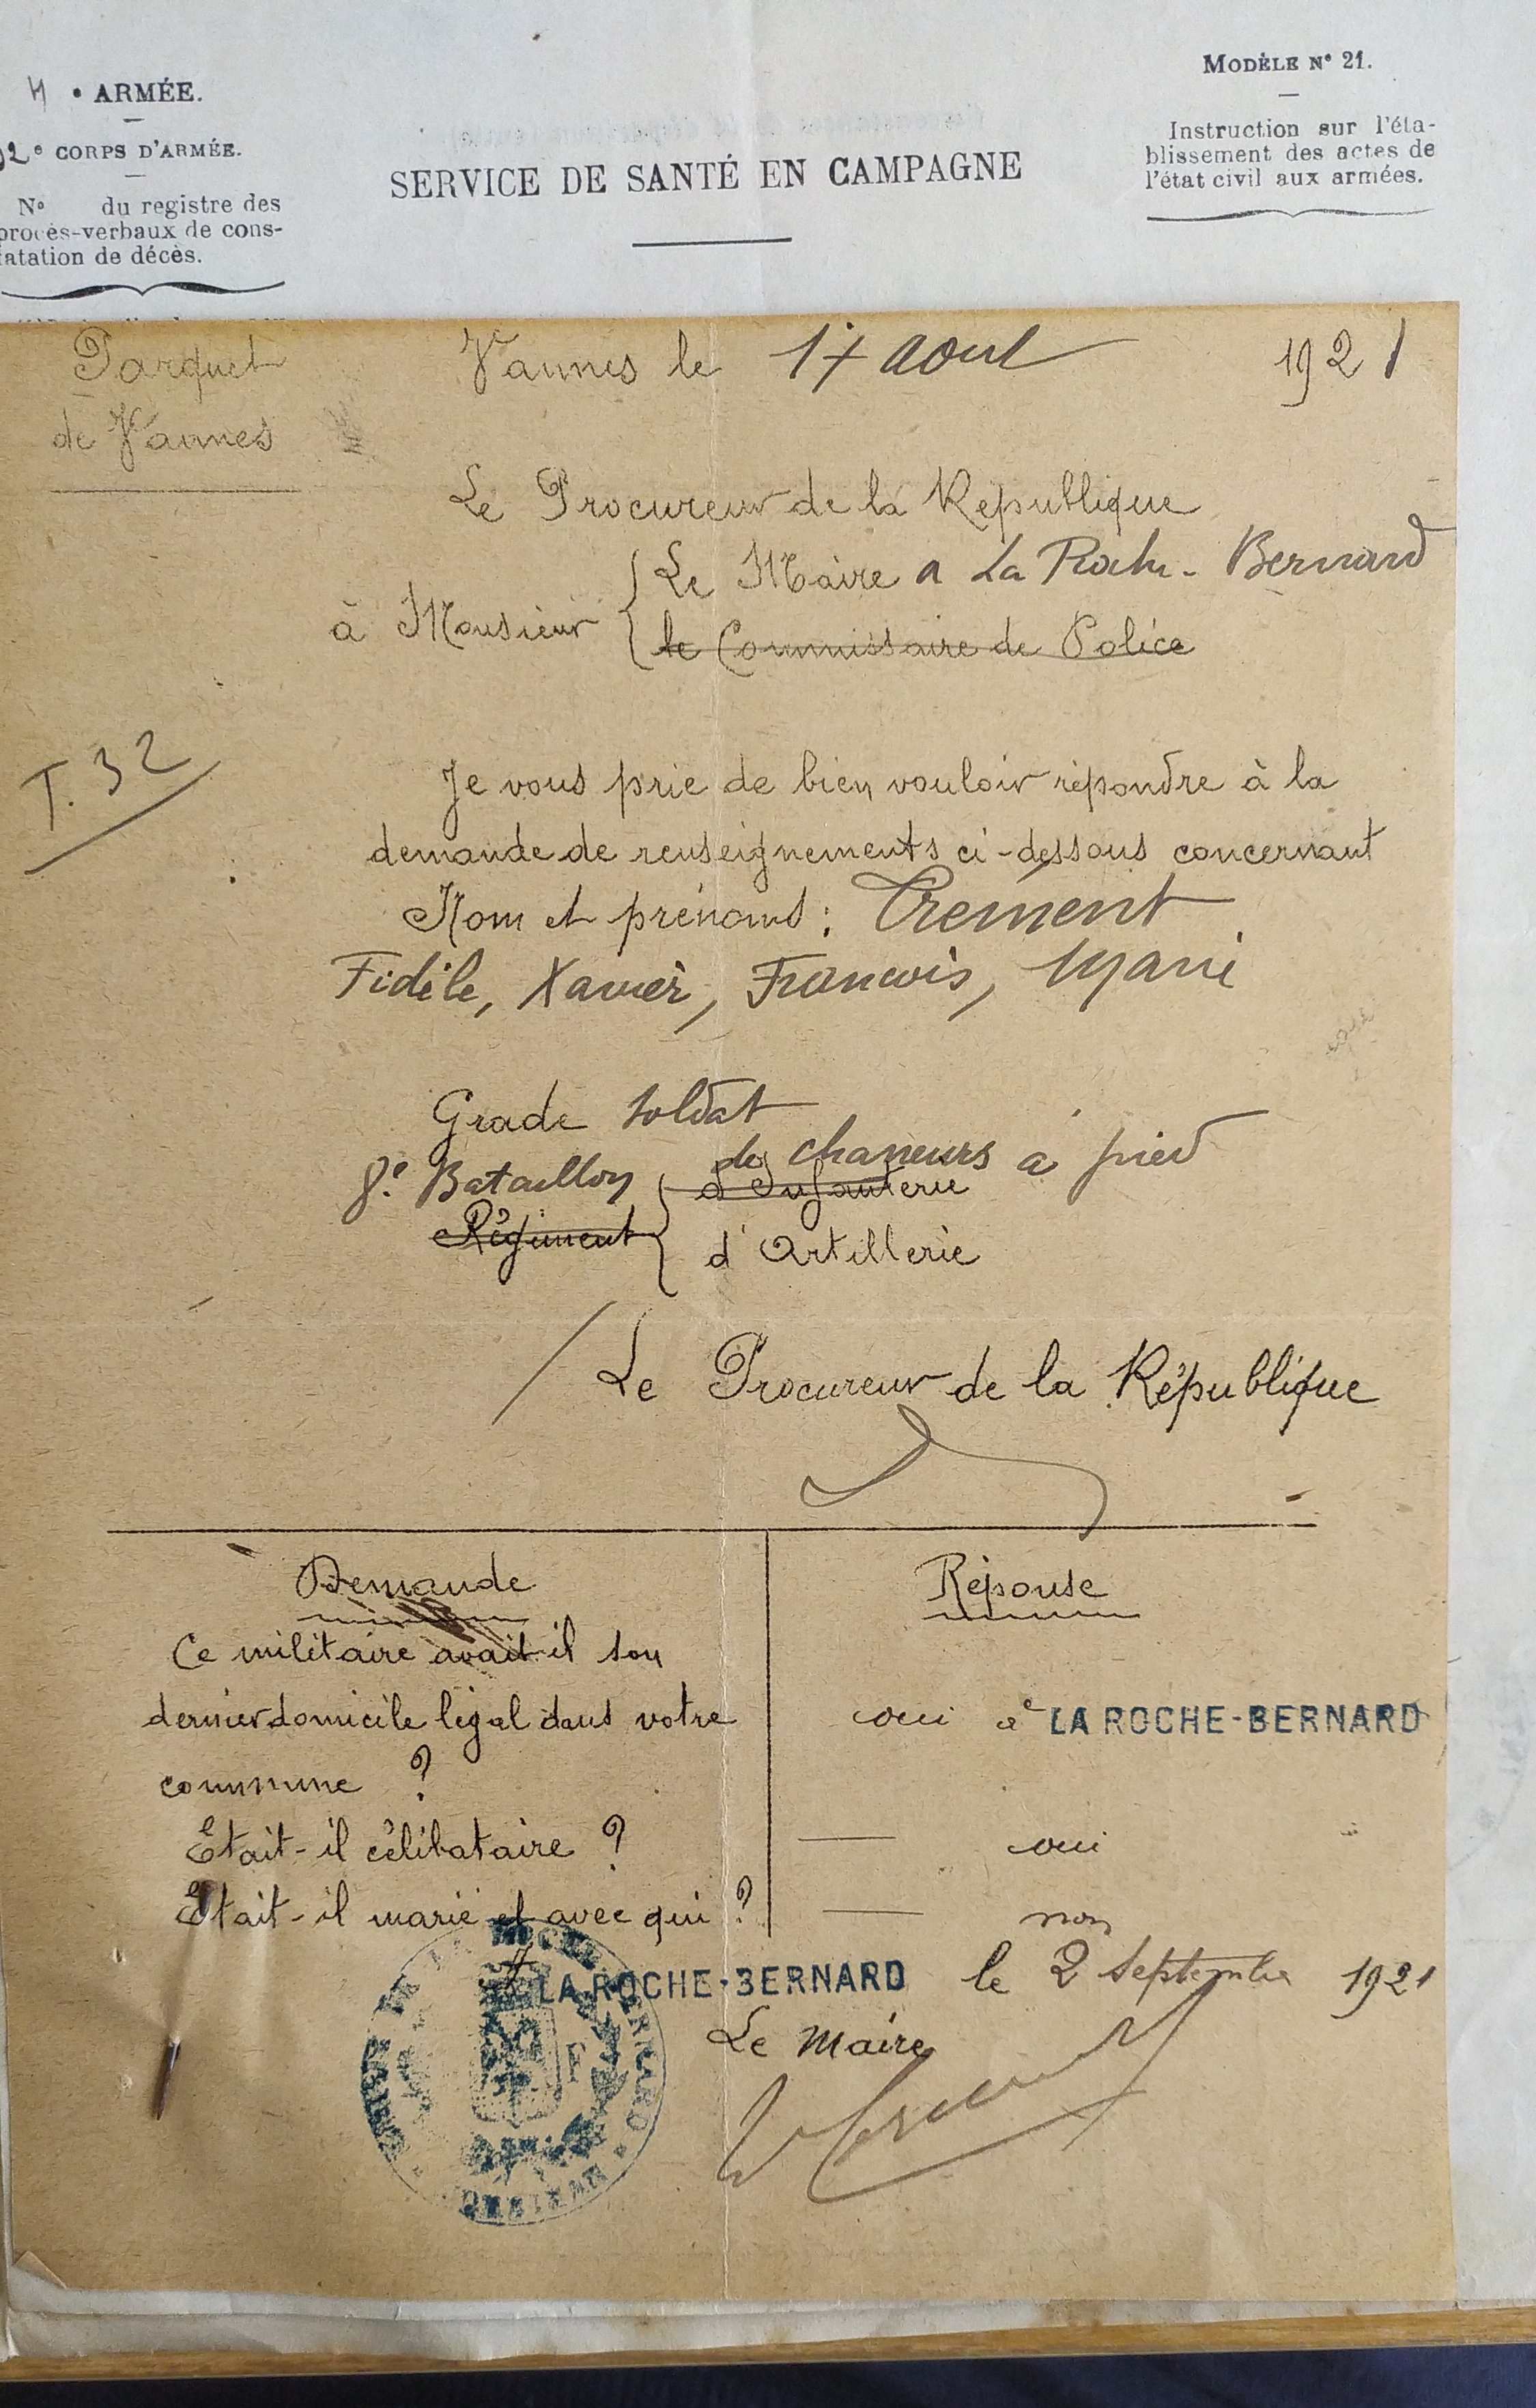 4e ARMÉE.
2e CORPS D'ARMÉE.
No du registre des
procès-verbaux de cons-
tatation de décès.
SERVICE DE SANTÉ EN CAMPAGNE
MODÈLE No 21.
Instruction sur l'éta-
blissement des actes de
l'état civil aux armées.
Parquet
de Vannes
Vannes le 17 aout 1921
Le Procureur de la République
à Monsieur
Le Maire a La Roche-Bernard
le Commissaire de Police
T. 32
Je vous prie de bien vouloir répondre à la
demande de renseignements ci-dessous concernant
Nom et prénoms : Crément
Fidèle, Xavier, Francois, Marie
Grade soldat
8e Bataillon des chasseurs à pied
d'Infanterie
Régiment
d'Artillerie
Le Procureur de la République
Demande
Réponse
Ce militaire avait-il son
dernier domicile légal dans votre
commune ?
oui à LA ROCHE-BERNARD
Etait-il célibataire ?
— oui
Etait-il marié et avec qui ?
— non
LA ROCHE-BERNARD le 2 Septembre 1921
Le Maire